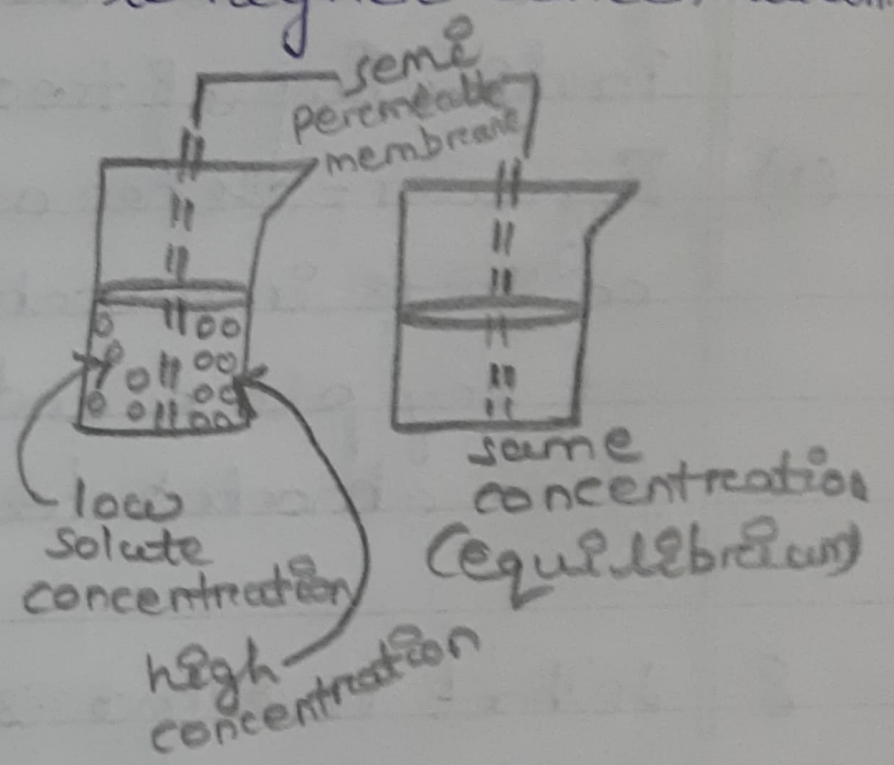 semi
permeable
membrane
low
solute
concentration
high
concentration
same
concentration
(equilibrium)